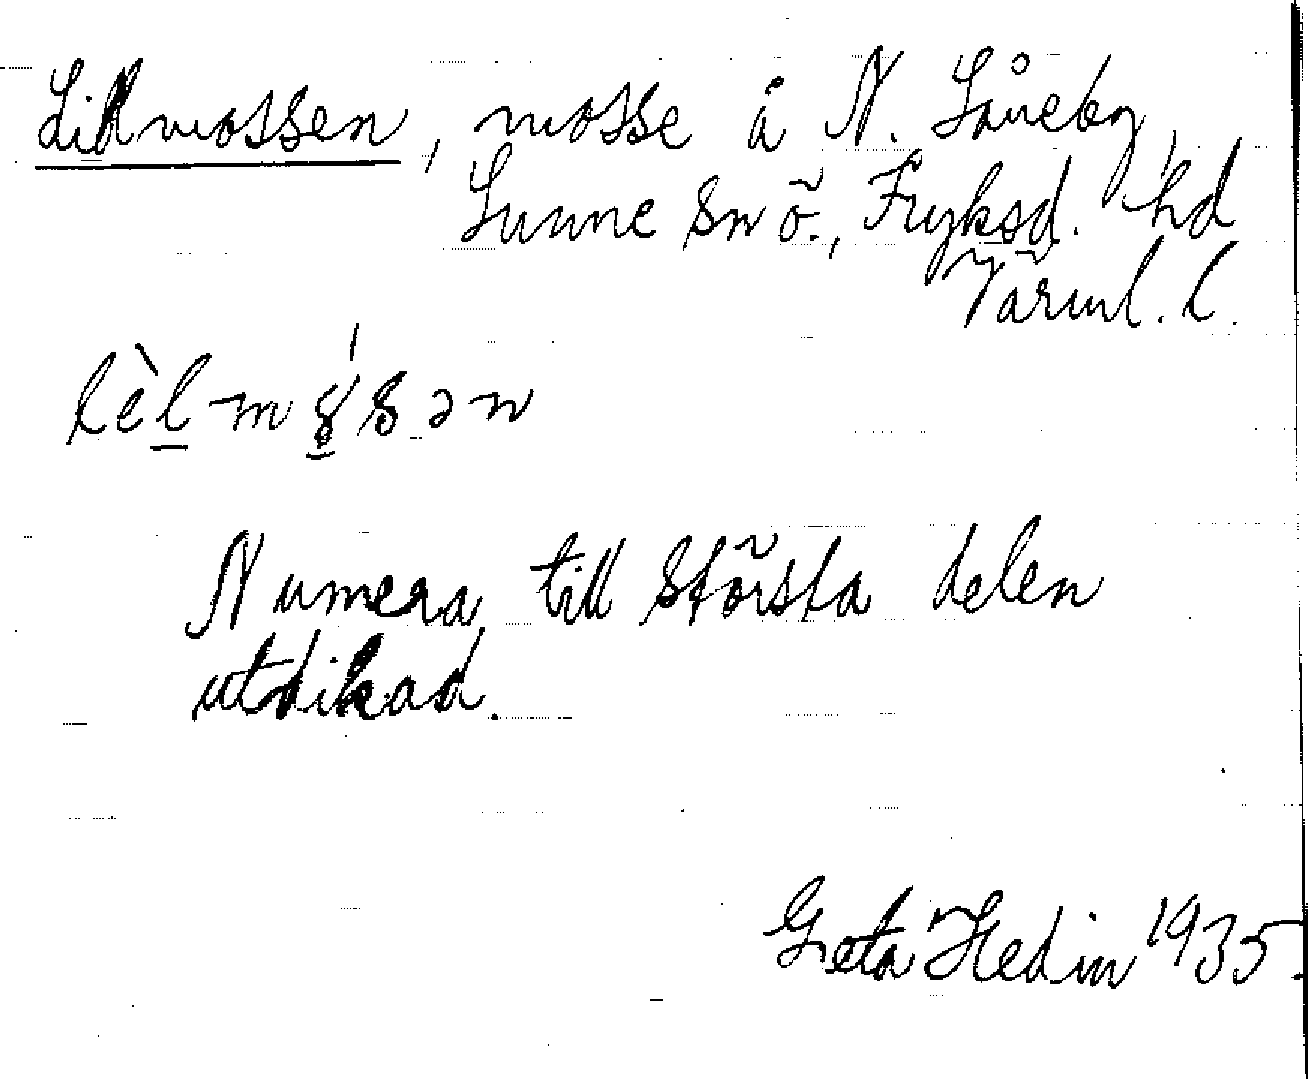 Lillmossen, mosse å N. Såneby,
Sunne sn ö., Fryksd. hd
Värml. l.
lèl-m sən
Numera till största delen
utdikad.
Greta Hedin 1935.